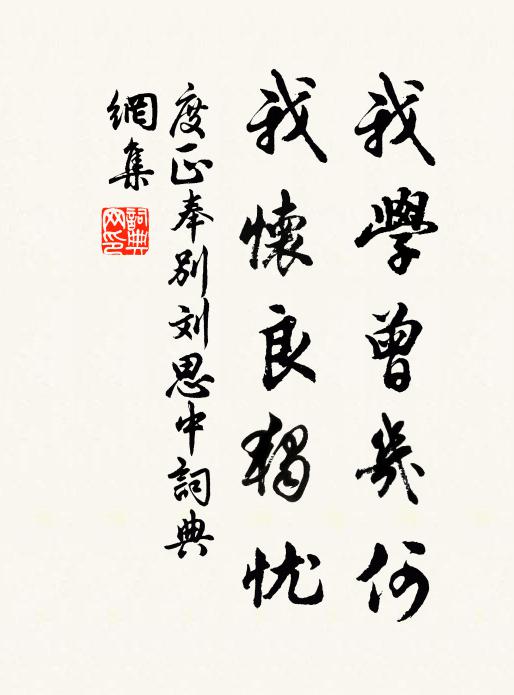 我學曾幾何
我懷良獨忧
度正奉别刘思中詞典
網集
詞典网印